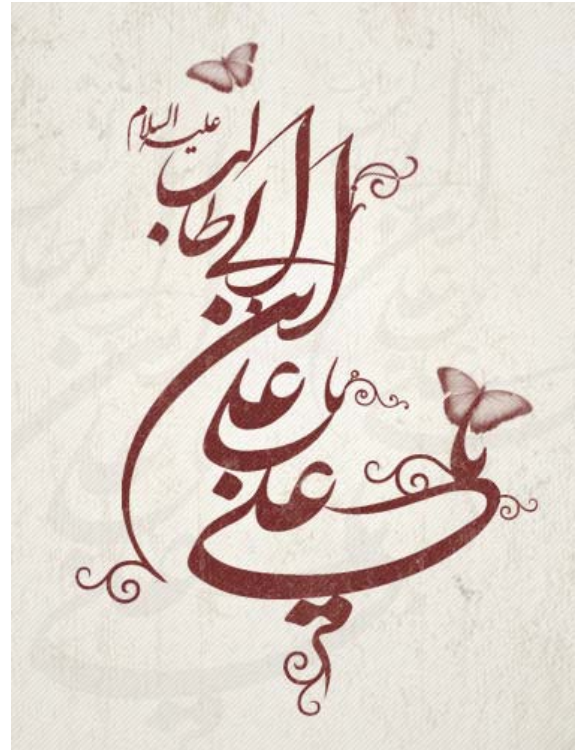 یا علی
یا علی
ابن ابی طالب
علیه السلام